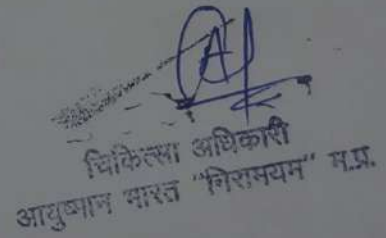 चिकित्सा अधिकारी
आयुष्मान भारत "निरामयम" म.प्र.